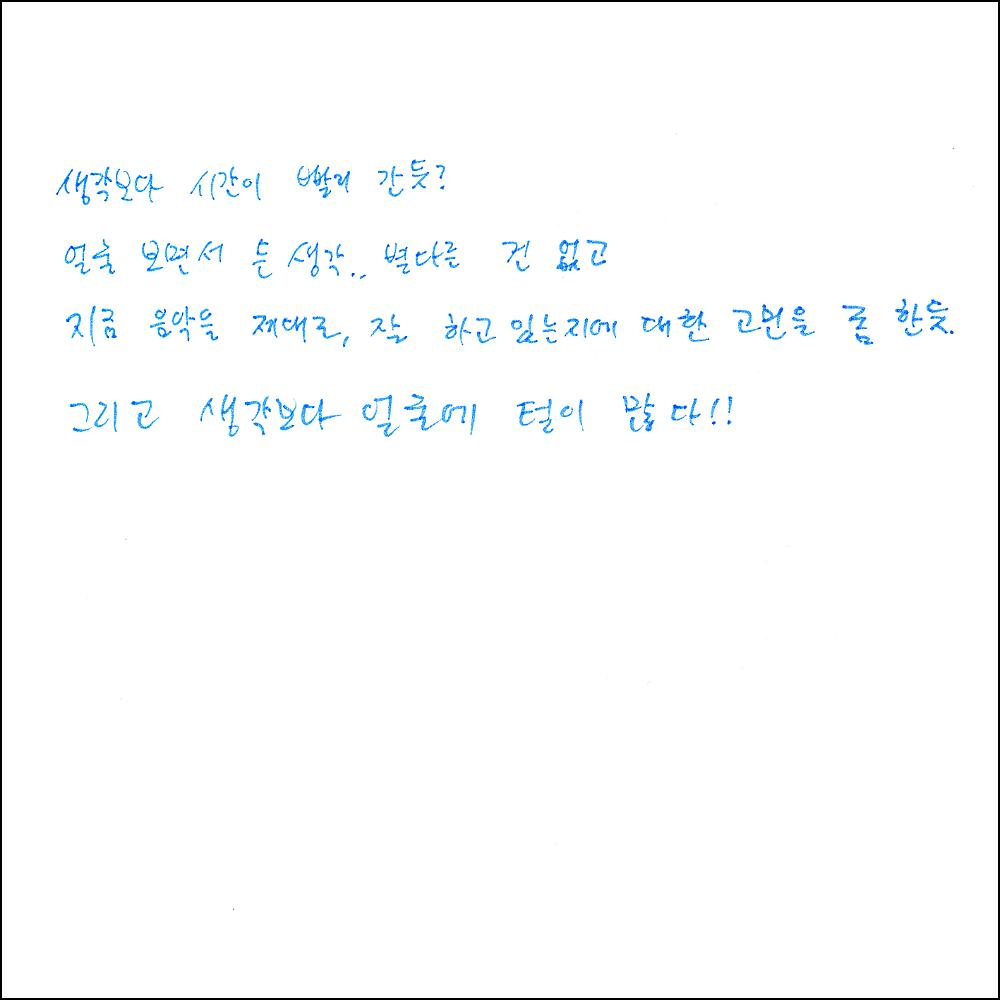 생각보다 시간이 빨리 간듯?
얼굴 보면서 든 생각.. 별다른 건 없고
지금 음악을 제대로, 잘 하고 있는지에 대한 고민을 좀 한듯.
그리고 생각보다 얼굴에 털이 많다!!